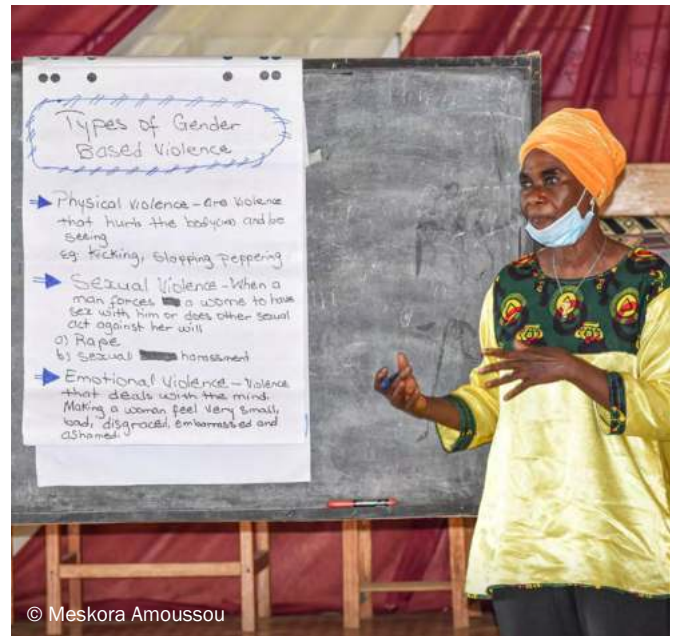 Types of Gender
Based Violence
Physical Violence - are Violence
that hurts the body and be
seeing
eg. Kicking, Slapping peppering
Sexual Violence - When a
man forces a to have
sex with him or does other sexual
act against her will
a) Rape
b) Sexual harassment
Emotional Violence - Violence
that deals with the mind.
Making a woman feel very small,
bad, disgraced, embarrassed and
ashamed.
© Meskora Amoussou